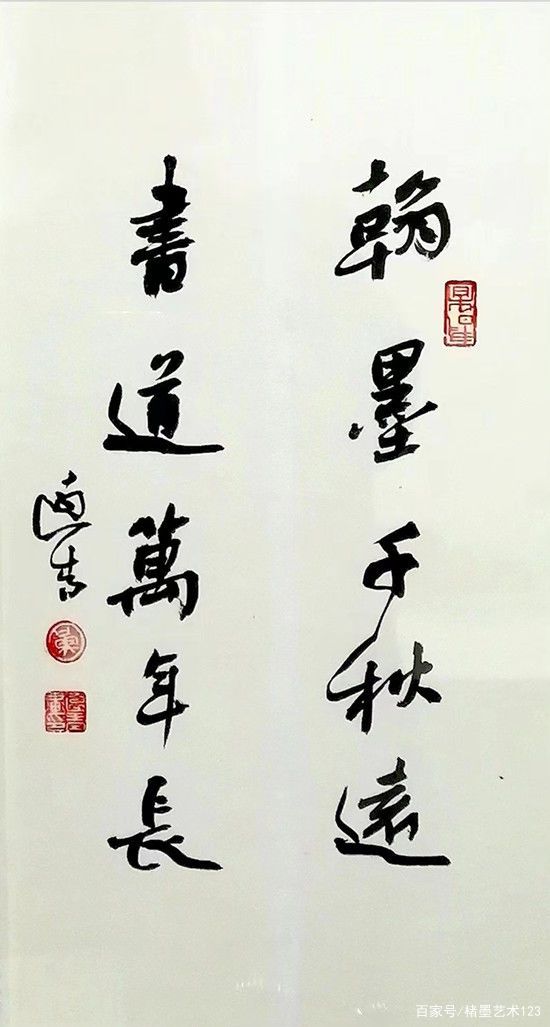 翰墨千秋遠
書道萬年長
百家号/楮墨艺术123